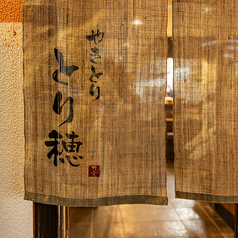 やきとり
とり穂